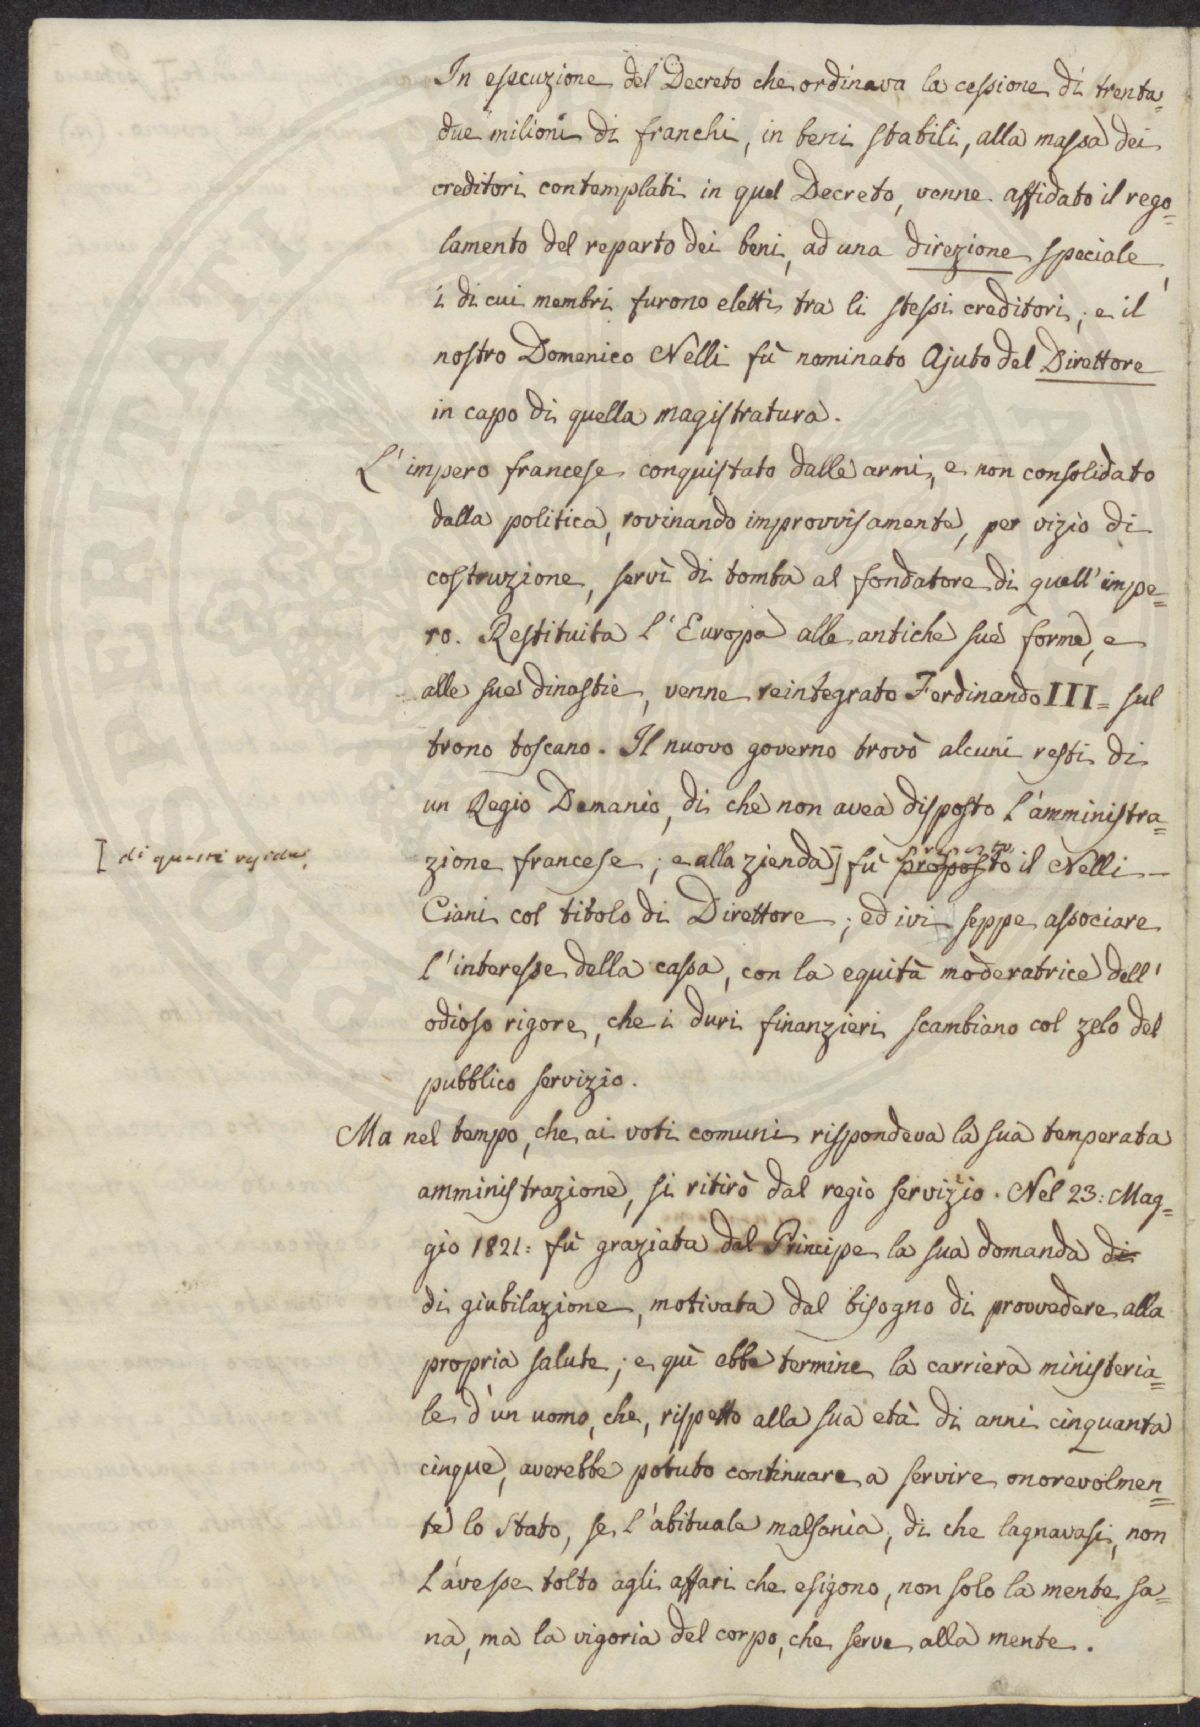 In esecuzione del Decreto che ordinava la cessione di trenta=
due milioni di franchi, in beni stabili, alla massa dei
creditori contemplati in quel Decreto, venne affidato il rego=
lamento del reparto dei beni, ad una direzione speciale,
i di cui membri furono eletti tra li stessi creditori; e il
nostro Domenico Nelli fù nominato Ajuto del Direttore
in capo di quella magistratura.
L'impero francese conquistato dalle armi, e non consolidato
dalla politica, rovinando improvvisamente, per vizio di
costruzione, servì di tomba al fondatore di quell'impe=
ro. Restituita l'Europa alle antiche sue forme, e
alle sue dinastie, venne reintegrato Ferdinando III= sul
trono toscano. Il nuovo governo trovò alcuni resti di
un Regio Demanio, di che non avea disposto l'amministra=
[ di questi residui
zione francese; e alla zienda] fù proposto il Nelli-
Ciani col titolo di Direttore; ed ivi seppe associare
l'interesse della cassa, con la equità moderatrice dell'
odioso rigore, che i duri finanzieri scambiano col zelo del
pubblico servizio.
Ma nel tempo, che ai voti comuni rispondeva la sua temperata
amministrazione, si ritirò dal regio servizio. Nel 23: Mag=
gio 1821: fù graziata dal Principe la sua domanda di
di giubilazione, motivata dal bisogno di provvedere alla
propria salute; e quì ebbe termine la carriera ministeria=
le d'un uomo, che, rispetto alla sua età di anni cinquanta
cinque, averebbe potuto continuare a servire onorevolmen=
te lo Stato, se l'abituale malsania, di che lagnavasi, non
l'avesse tolto agli affari che esigono, non solo la mente sa=
na, ma la vigoria del corpo, che serve alla mente.